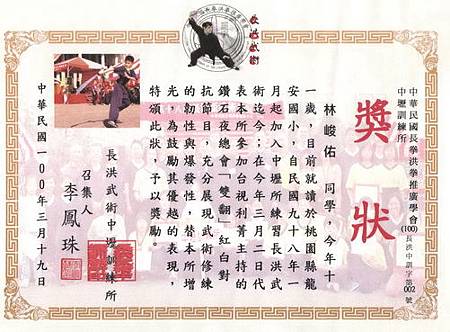 中華民國長拳洪拳推廣學會
中壢訓練所
(100)長洪中訓字第002號
獎狀
林峻佑 同學，今年十
一歲，目前就讀於桃園縣龍
安國小，自民國九十八年一
月起加入中壢所練習長洪武
術迄今；在今年三月二日代
表本所參加台視利菁主持的
鑽石夜總會「雙翻」紅白對
抗節目，充分展現武術修練
的韌性與爆發性，替本所增
光，為鼓勵其優越的表現，
特頒此狀，予以獎勵。
長洪武術中壢訓練所
召集人 李鳳珠
中華民國一00年三月十九日